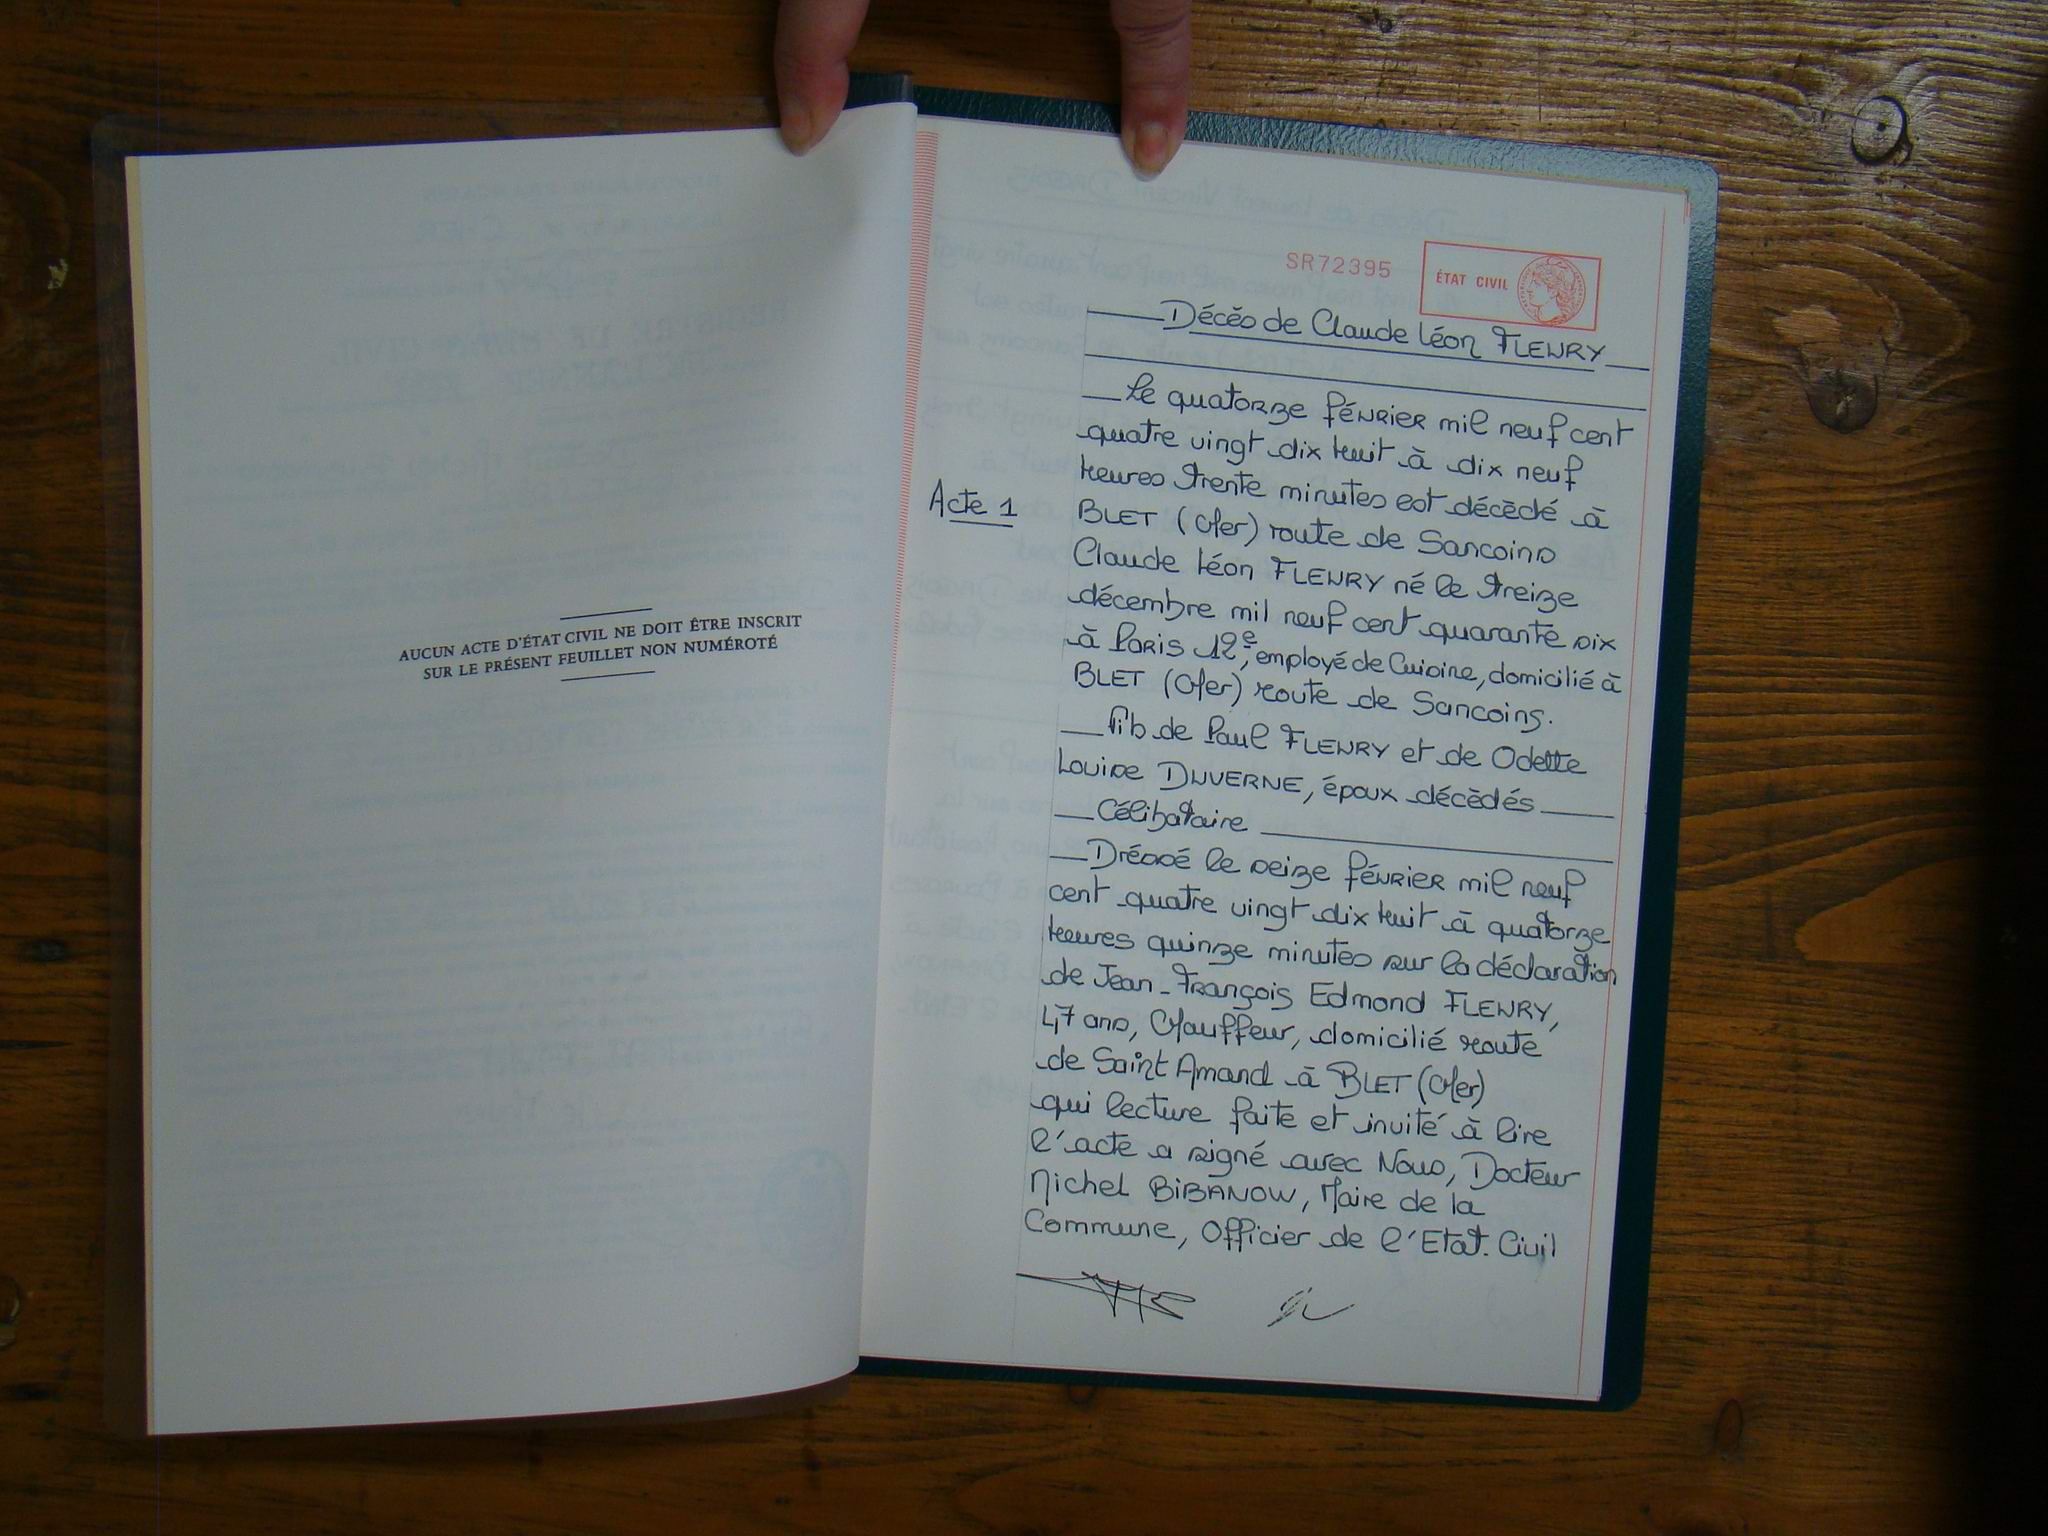 AUCUN ACTE D'ÉTAT CIVIL NE DOIT ÊTRE INSCRIT
SUR LE PRÉSENT FEUILLET NON NUMÉROTÉ
SR72395
ÉTAT CIVIL
Décès de Claude Léon FLEURY
Acte 1
Le quatorze février mil neuf cent
quatre vingt dix huit à dix neuf
heures trente minutes est décèdé à
BLET (Cher) route de Sancoins
Claude Léon FLEURY né le treize
décembre mil neuf cent quarante six
à Paris 12e, employé de Cuisine, domicilié à
BLET (Cher) route de Sancoins.
Fils de Paul FLEURY et de Odette
Louise DUVERNE, époux décèdés
Célibataire
Dressé le seize février mil neuf
cent quatre vingt dix huit à quatorze
heures quinze minutes sur la déclaration
de Jean-François Edmond FLEURY,
47 ans, Chauffeur, domicilié route
de Saint Amand à BLET (Cher)
qui lecture faite et invité à lire
l'acte a signé avec Nous, Docteur
Michel BIBANOW, Maire de la
Commune, Officier de l'Etat. Civil